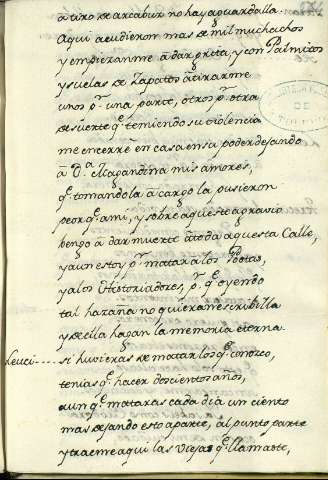 a tiro de arcabuz no hay aguardalla.
Aqui acudieron mas de mil muchachos
y empieranme à dar grita, y con Palmitos
y suelas de Zapatos à tirarme
unos pr. una parte, otros pr. otra
de suerte qe. temiendo su violencia
me encerrè en casa en su poder dejando
à Da. Magandina mis amores,
qe. tomandola à cargo la pusieron
peor qe. ami, y sobre aqueste agravio
bengo à dar muerte à toda aquesta Calle,
y aun estoy pr. matar a los Poetas,
y a los Historiadores, pr. qe. oyendo
tal hazaña no quieran escribilla
y decilla hagan la memoria eterna.
Leuci.... si huvieras de matar los qe. conozco,
tenias qe. hacer doscientos años,
aunqe. mataras cada dia un ciento
mas dejando esto aparte, al punto parte
y traeme aqui las viejas qe. llamaste,